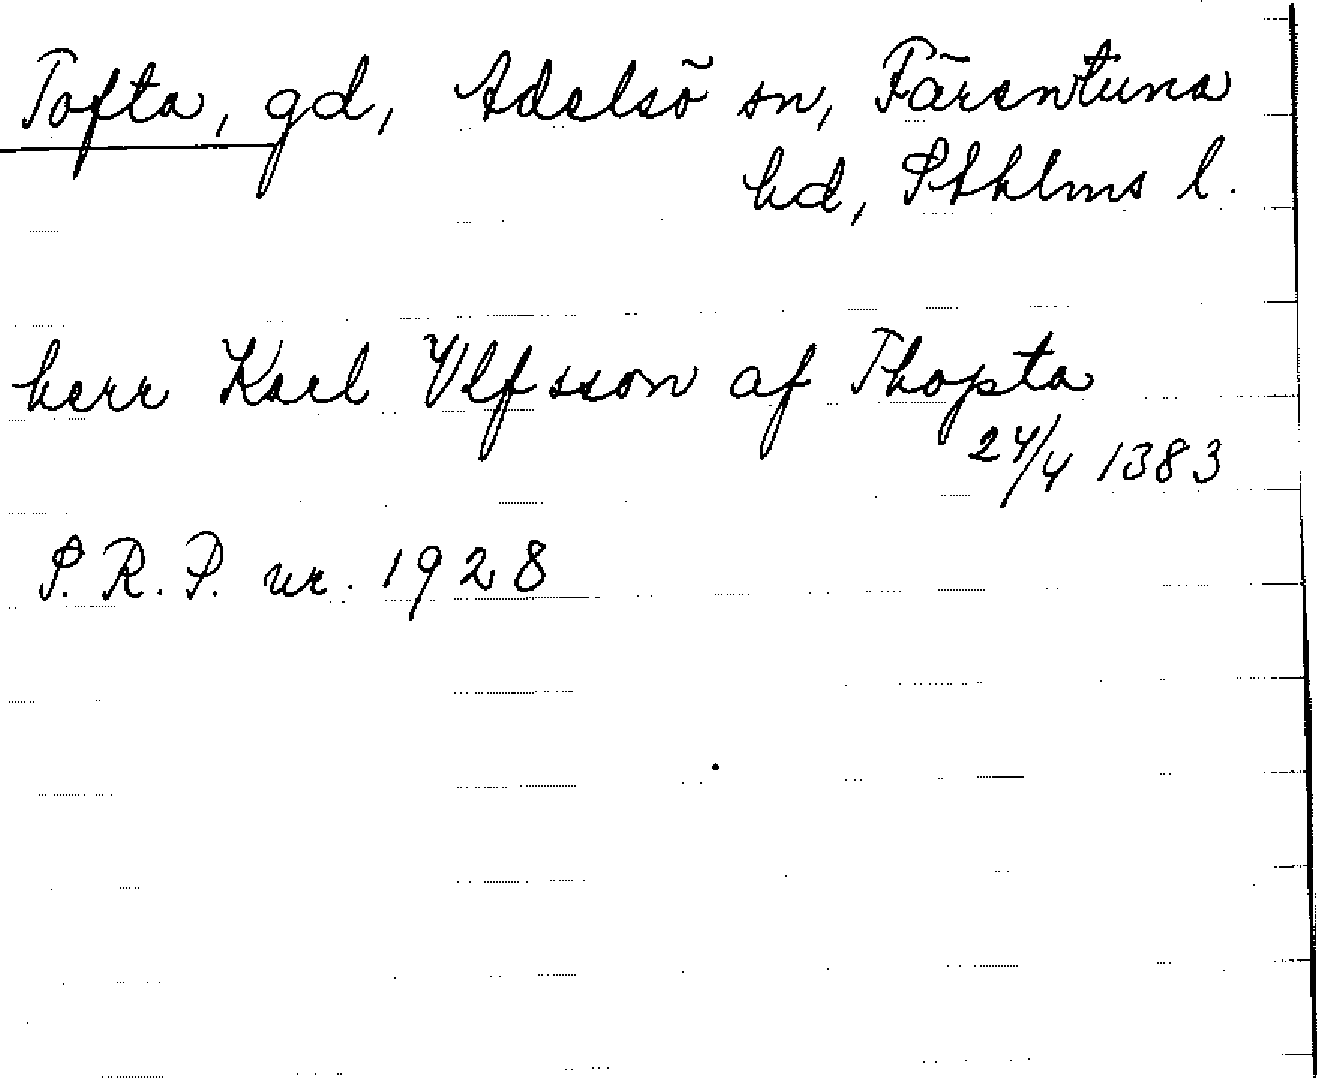 Tofta, gd, Adelsö sn, Färentuna
hd, Sthlms l.
herr Karl Ulfsson af Thopta
24/4 1383
S.R.P. nr. 1928